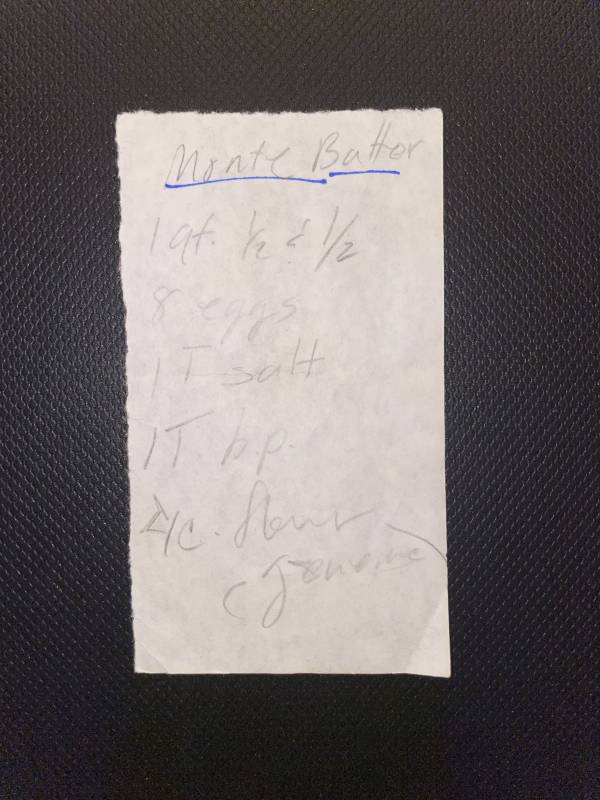 Monte Batter
1 qt. 1/2 & 1/2
8 eggs
1 T salt
1 T b.p.
c. flour